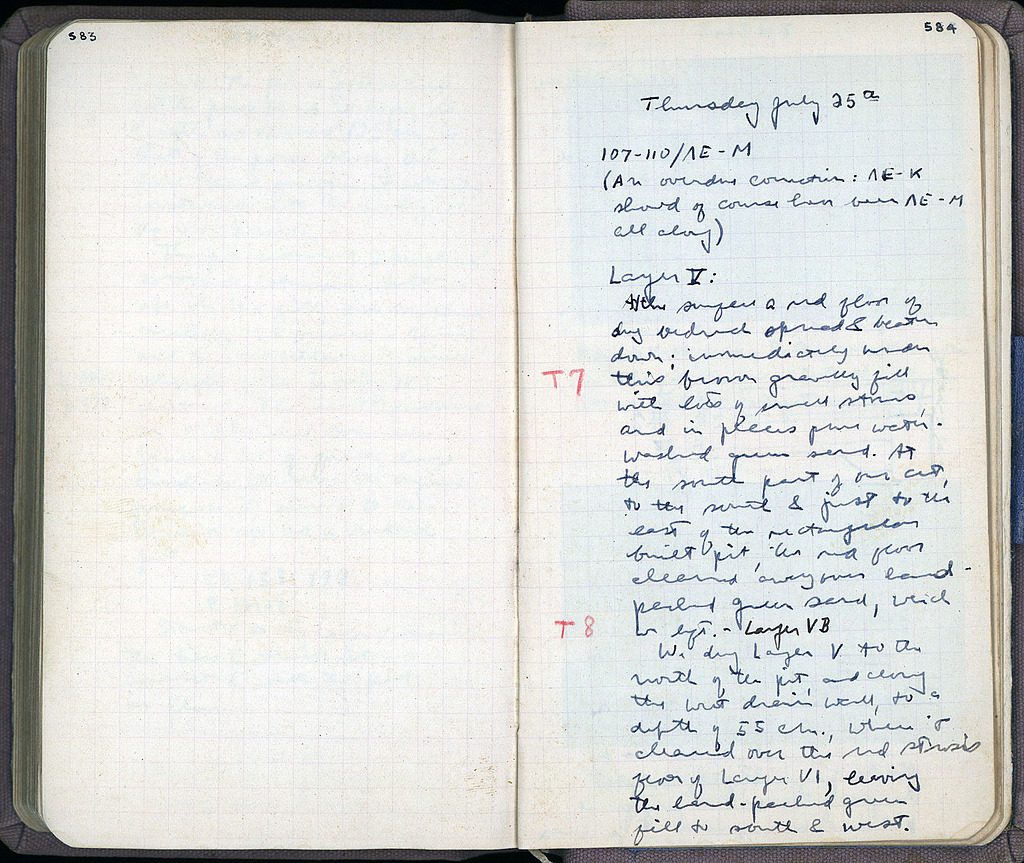 583
584
Thursday July 25th
107-110/ΛE-M
(An overdue correction: ΛE-K
should of course have been ΛE-M
all along)
Layer V:
surface a red floor of
dug bedrock spread & beaten
down; immediately under
T7
this brown gravelly fill
with lots of small stones,
and in places pure water-
washed green sand. At
the south part of our cut,
to the south & just to the
east of the rectangular
built pit, the red floor
cleaned away over hard-
packed green sand, which
T8
we left. - Layer VB
We dug Layer V to the
north of the pit, and along
the west drain wall, to a
depth of 55 cm., where it
cleaned over the red
floor of Layer VI, leaving
the hard-packed green
fill to south & west.